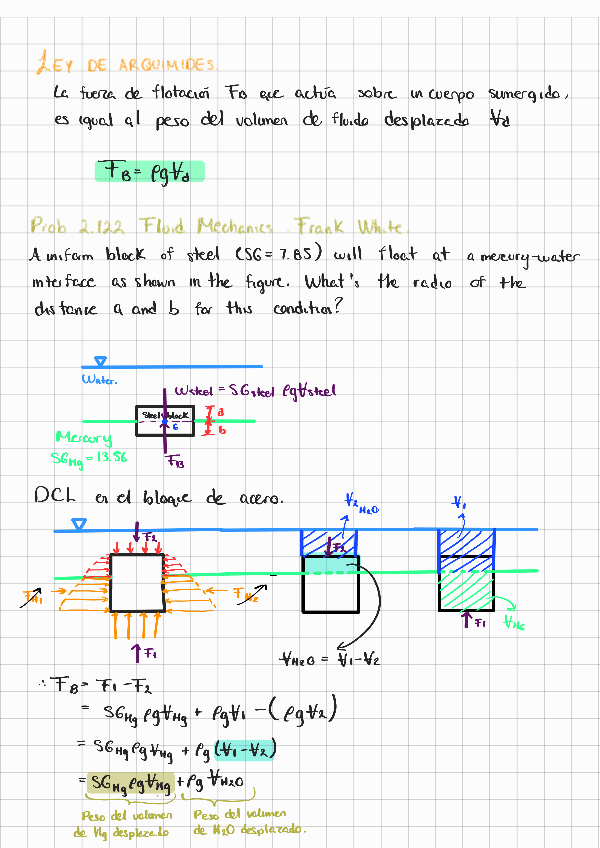 LEY DE ARQUIMIDES.
La fuerza de flotación FB que actúa sobre un cuerpo sumergido,
es igual al peso del volumen de fluido desplazado V̶d
FB = ρgV̶d
Prob 2.122 Fluid Mechanics. Frank White.
A uniform block of steel (SG = 7.85) will float at a mercury-water
interface as shown in the figure. What's the radio of the
distance a and b for this condition?
Water.
Wsteel = SGsteel ρgV̶steel
Steel block
a
G
b
Mercury
SGHg = 13.56
FB
DCL en el bloque de acero.
V̶2 H2O
V̶1
F2
F2
FH1
FH2
F1
F1
V̶HG
V̶H2O = V̶1 - V̶2
∴ FB = F1 - F2
= SGHg ρgV̶Hg + ρgV̶1 - (ρgV̶2)
= SGHg ρgV̶Hg + ρg(V̶1 - V̶2)
= SGHg ρgV̶Hg + ρgV̶H2O
Peso del volumen Peso del volumen
de Hg desplazado de H2O desplazado.